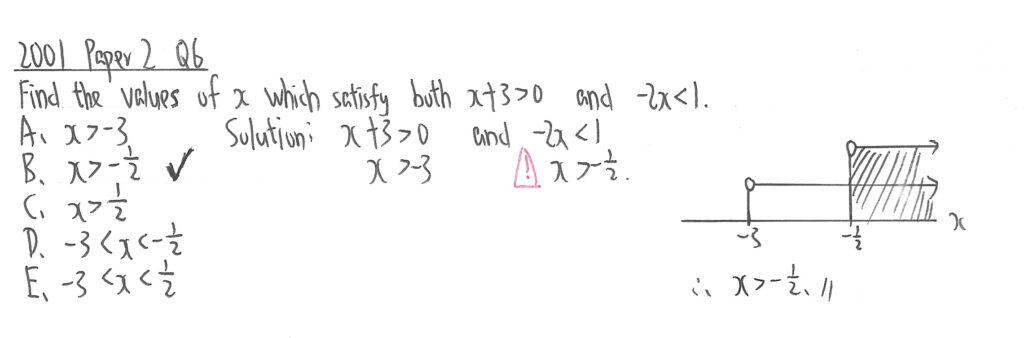 2001 Paper 2 Q6
Find the values of x which satisfy both x+3>0 and -2x<1.
A. x>-3 Solution: x+3>0 and -2x<1
B. x>-½ ✓ x>-3 ! x>-½.
C. x>½
D. -3<x<-½
E. -3<x<½
-3 -½ x
∴ x>-½. //